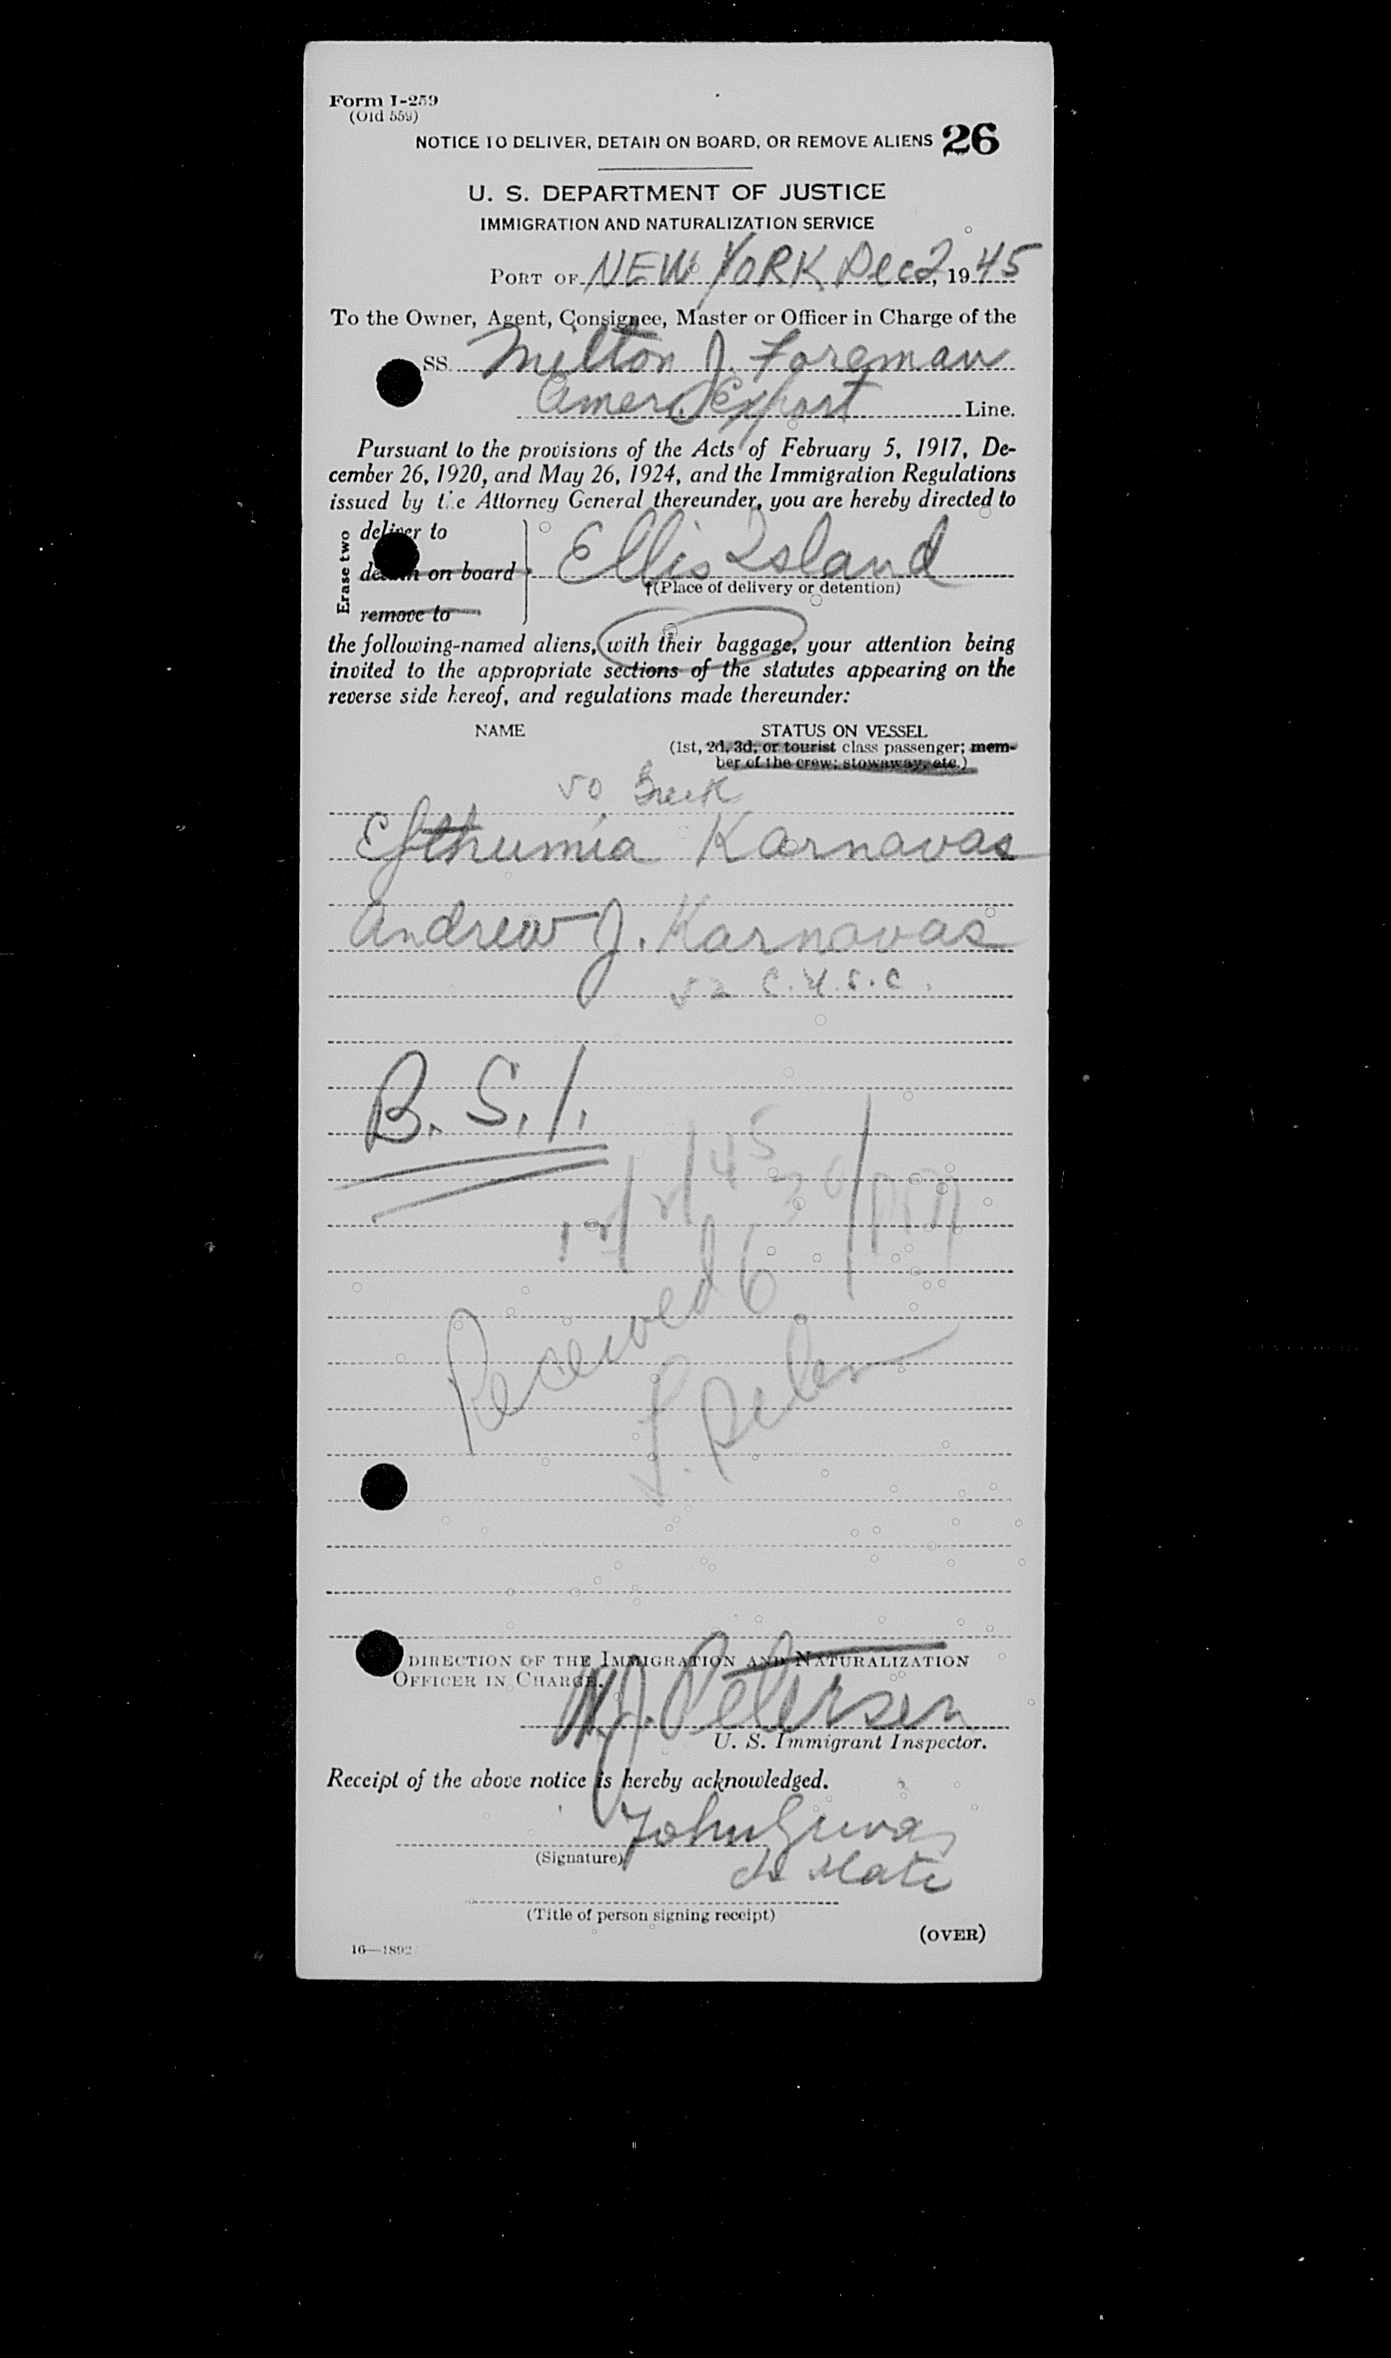 Form I-259
(Old 559)
NOTICE TO DELIVER, DETAIN ON BOARD, OR REMOVE ALIENS 26
U. S. DEPARTMENT OF JUSTICE
IMMIGRATION AND NATURALIZATION SERVICE
PORT OF NEW YORK Dec 2, 1945
To the Owner, Agent, Consignee, Master or Officer in Charge of the
SS. Milton J. Foreman
Amer. Export Line.
Pursuant to the provisions of the Acts of February 5, 1917, De-
cember 26, 1920, and May 26, 1924, and the Immigration Regulations
issued by the Attorney General thereunder, you are hereby directed to
Erase two
deliver to
detain on board
remove to
Ellis Island
†(Place of delivery or detention)
the following-named aliens, with their baggage, your attention being
invited to the appropriate sections of the statutes appearing on the
reverse side hereof, and regulations made thereunder:
NAME STATUS ON VESSEL
(1st, 2d, 3d, or tourist class passenger; mem-
ber of the crew; stowaway, etc.)
50 Greek
Efthumia Karnavas
Andrew J. Karnavas
52 C.U.S.C.
B.S.I.
12/2/45
Received 6 30/PM
DIRECTION OF THE IMMIGRATION AND NATURALIZATION
OFFICER IN CHARGE.
Petersen
U. S. Immigrant Inspector.
Receipt of the above notice is hereby acknowledged.
John
(Signature)
Ch Mate
(Title of person signing receipt)
(OVER)
16—1892